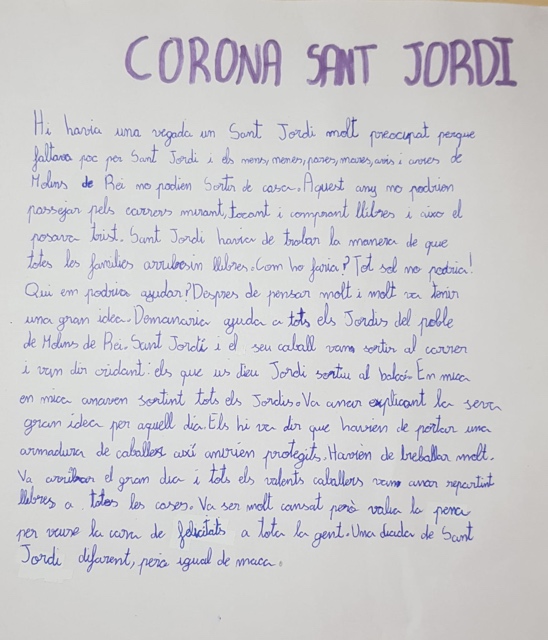 CORONA SANT JORDI
Hi havia una vegada un Sant Jordi molt preocupat perque
faltava poc per Sant Jordi i els nens, nenes, pares, mares, avis i avies de
Molins de Rei no podien sortir de casa. Aquest any no podrien
passejar pels carrers mirant, tocant i comprant llibres i aixo el
posava trist. Sant Jordi havia de trobar la manera de que
totes les families arribesin llibres. Com ho faria? Tot sol no podria!
Qui em podria ajudar? Despres de pensar molt i molt va tenir
una gran idea. Demanaria ajuda a tots els Jordis del poble
de Molins de Rei. Sant Jordi i el seu caball van sortir al carrer
i van dir cridant: els que us dieu Jordi sortiu al balcó. En mica
en mica anaven sortint tots els Jordis. Va anar explicant la seva
gran idea per aquell dia. Els hi va dir que havien de portar una
armadura de caballer així anirien protegits. Havien de treballar molt.
Va arribar el gran dia i tots els valents caballers van anar repartint
llibres a totes les cases. Va ser molt cansat però valia la pena
per veure la cara de felicitats a tota la gent. Una diada de Sant
Jordi diferent, pero igual de maca.